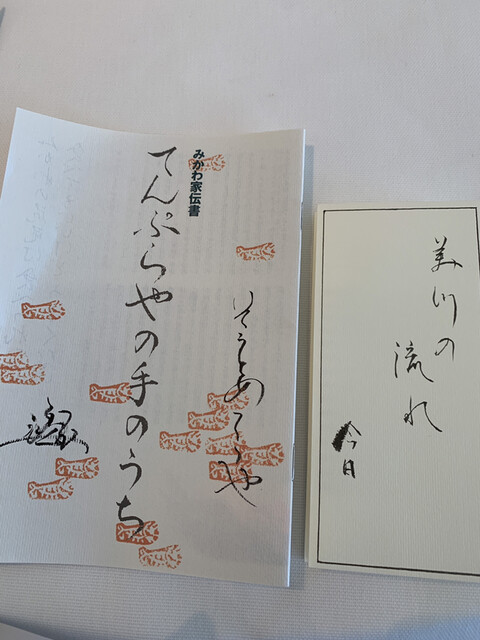 みかわ家伝書
てんぷらやの手のうち
美川の
流れ
今日